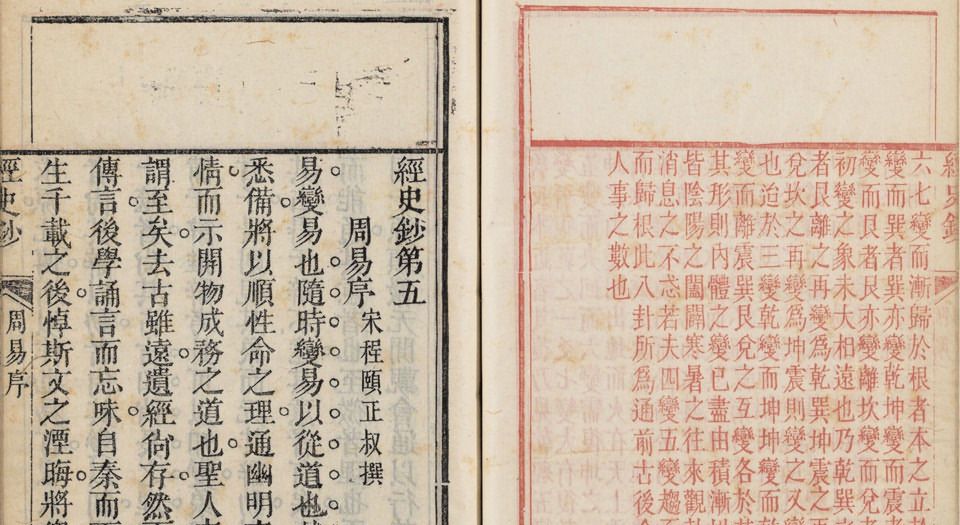 經史鈔
六七變而漸歸於根者本之立
變而巽者巽亦變乾坤變而震
變而艮者艮亦變離坎變而兌
初變之象未大相遠也乃乾巽
者艮離之再變爲乾巽坤震之
兌坎之再變爲坤震則變之又
也迨於三變乾變而坤坤變而
變而離震巽艮兌之互變各於
其形則內體之變已盡由積漸
皆陰陽之闔闢寒暑之往來觀
消息之不忒若夫四變五變趨
而歸根此八卦所爲通前古後
人事之數也
經史鈔第五
周易序 宋程頤正叔撰
易變易也隨時變易以從道也
悉備將以順性命之理通幽明
情而示開物成務之道也聖人
謂至矣去古雖遠遺經尙存然
傳言後學誦言而忘味自秦而
生千載之後悼斯文之湮晦將
經史鈔
周易序